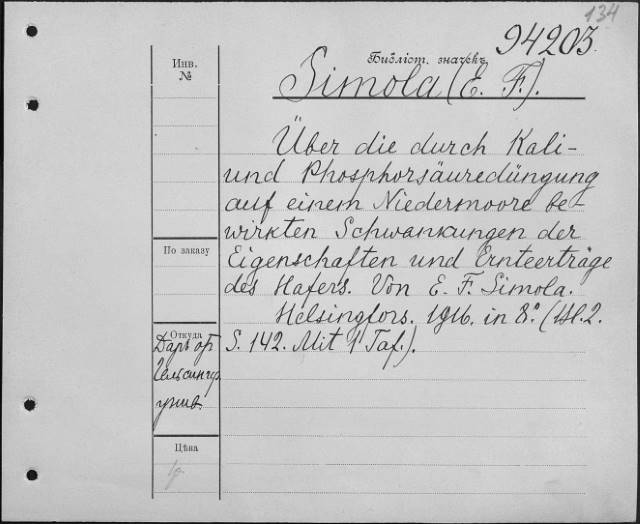 134
94203.
Инв.
№
Библіот. значекъ
Simola (E. F.).
Über die durch Kali-
und Phosphorsäuredüngung
auf einem Niedermoore be-
wirkten Schwankungen der
По заказу
Eigenschaften und Ernteerträge
des Hafers. Von E. F. Simola.
Helsingfors. 1916. in 8.°
Откуда
S. 142. Mit 1 Taf.).
Даръ от
унив.
Цѣна